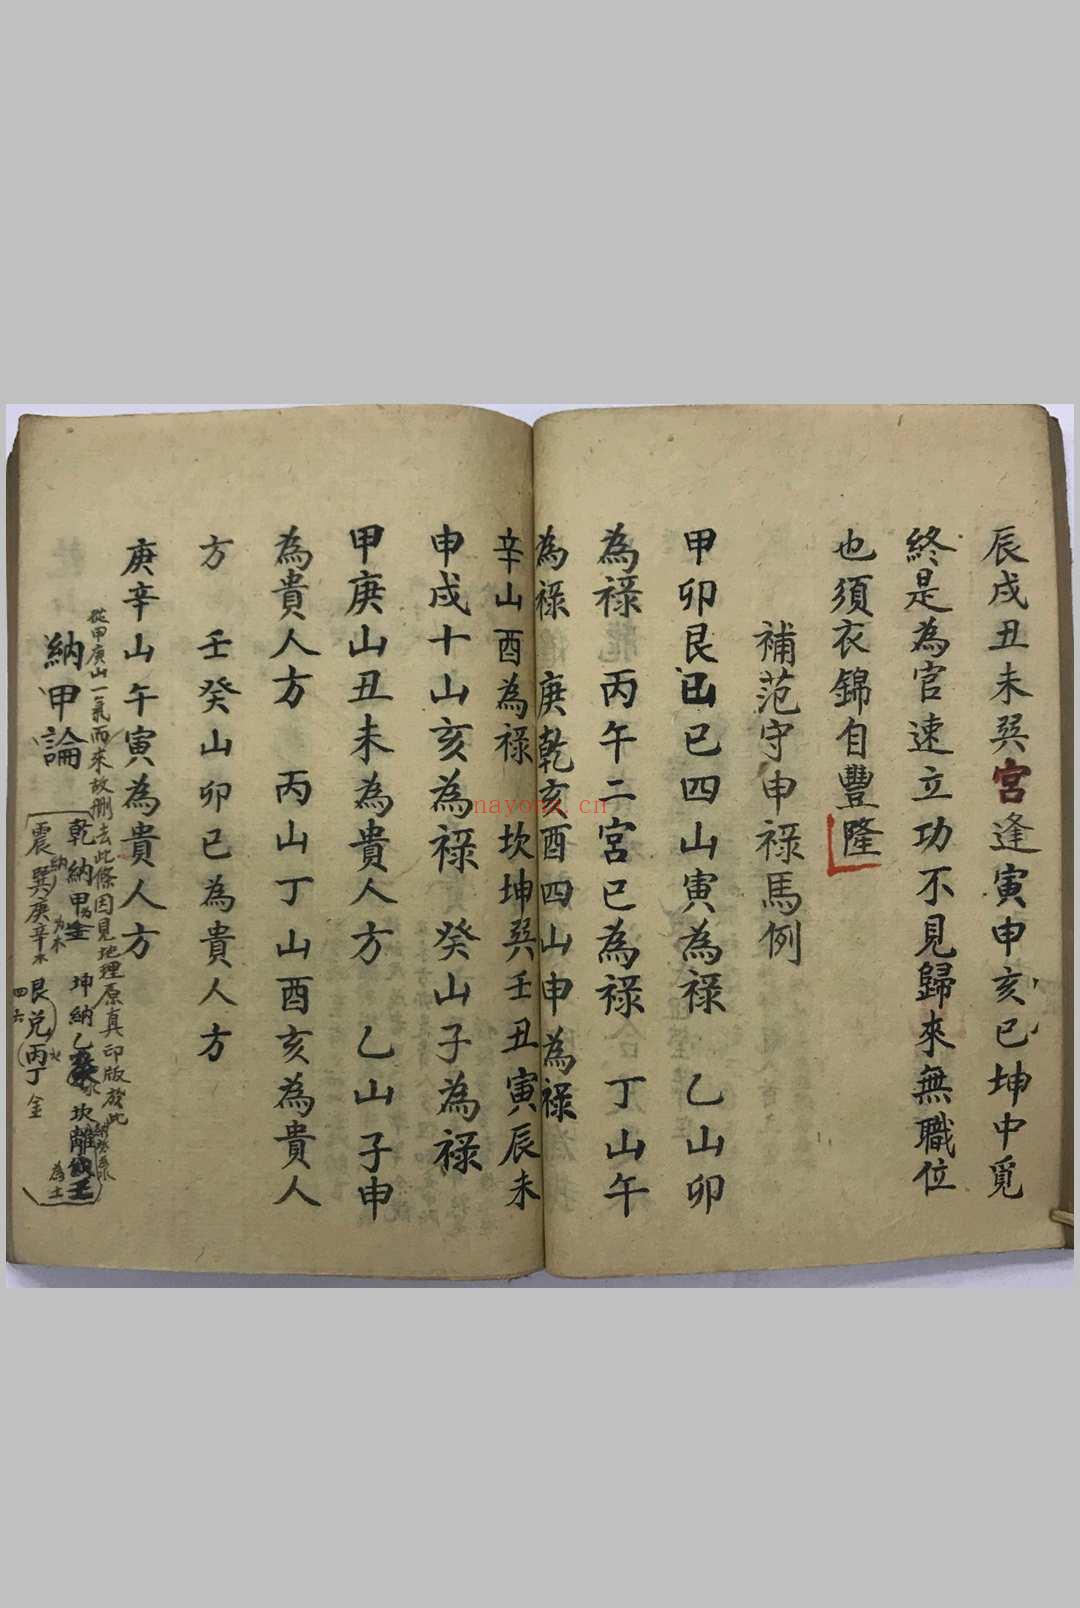 辰戌丑未巽宮逢寅申亥巳坤中覓
終是為官速立功不見歸來無職位
也須衣錦自豐隆
補范守申禄馬例
甲卯艮巳四山寅為禄 乙山卯
為禄 丙午二宮巳為禄 丁山午
為禄 庚乾亥酉四山申為禄
辛山酉為禄 坎坤巽壬丑寅辰未
申戌十山亥為禄 癸山子為禄
甲庚山丑未為貴人方 乙山子申
為貴人方 丙山丁山酉亥為貴人
方 壬癸山卯巳為貴人方
庚辛山午寅為貴人方
從甲庚山一氣而來故刪去此條因見地理原真印版發此
納甲論
乾納甲為金 坤納乙 坎離納壬
震巽納庚辛為木 艮兌丙丁 金
四六
為土
nayona.cn